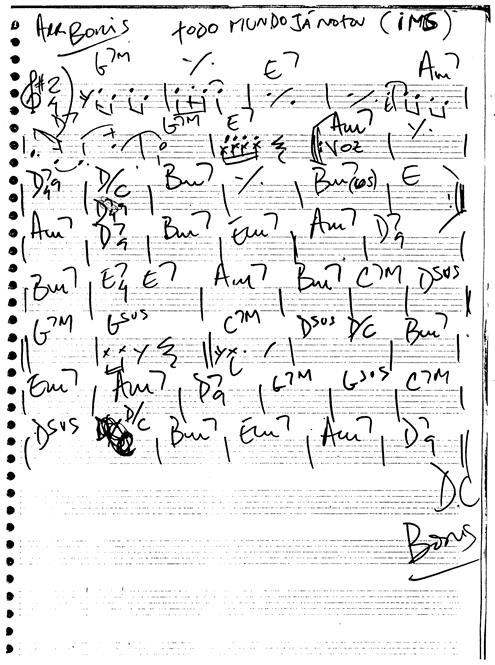 Arr. Boris TODO MUNDO JÁ NOTOU (IMS)
G7M ٪ E7 Am7
2 4 ٪ ٪
D7 G7M E7 Am7 ٪
VOZ
D7 4 9 D/C Bm7 ٪ Bm7(b5) E
Am7 D7 9 Bm7 Em7 Am7 D7 9
Bm7 E7 4 E7 Am7 Bm7 C7M Dsus
G7M Gsus C7M Dsus D/C Bm7
Em7 Am7 D7 9 G7M Gsus C7M
Dsus D/C Bm7 Em7 Am7 D7 9
D.C
Boris